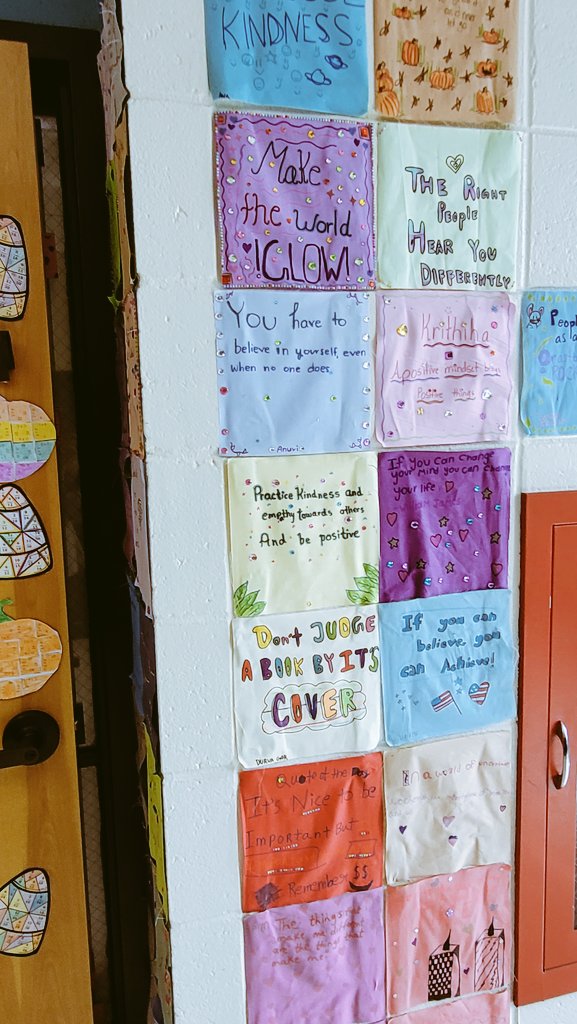 KINDNESS
Make
the world
!GLOW!
THE RIGHT
PEOPLE
HEAR YOU
DIFFERENTLY
YOU have to
believe in yourself, even
when no one does.
-Anuvi-
Krithiha
A positive mindset brings
Positive things
Peopl
as a
Practice Kindness and
empthy towards others
And be positive
If you can change
your mind you can change
your life.
DON'T JUDGE
A BOOK BY IT'S
COVER
If you can
believe you
can Achieve!
Quote of the Day
It's Nice to be
Important But
Remember
$$
In a world of
The things that
make me different
are the things that
make me